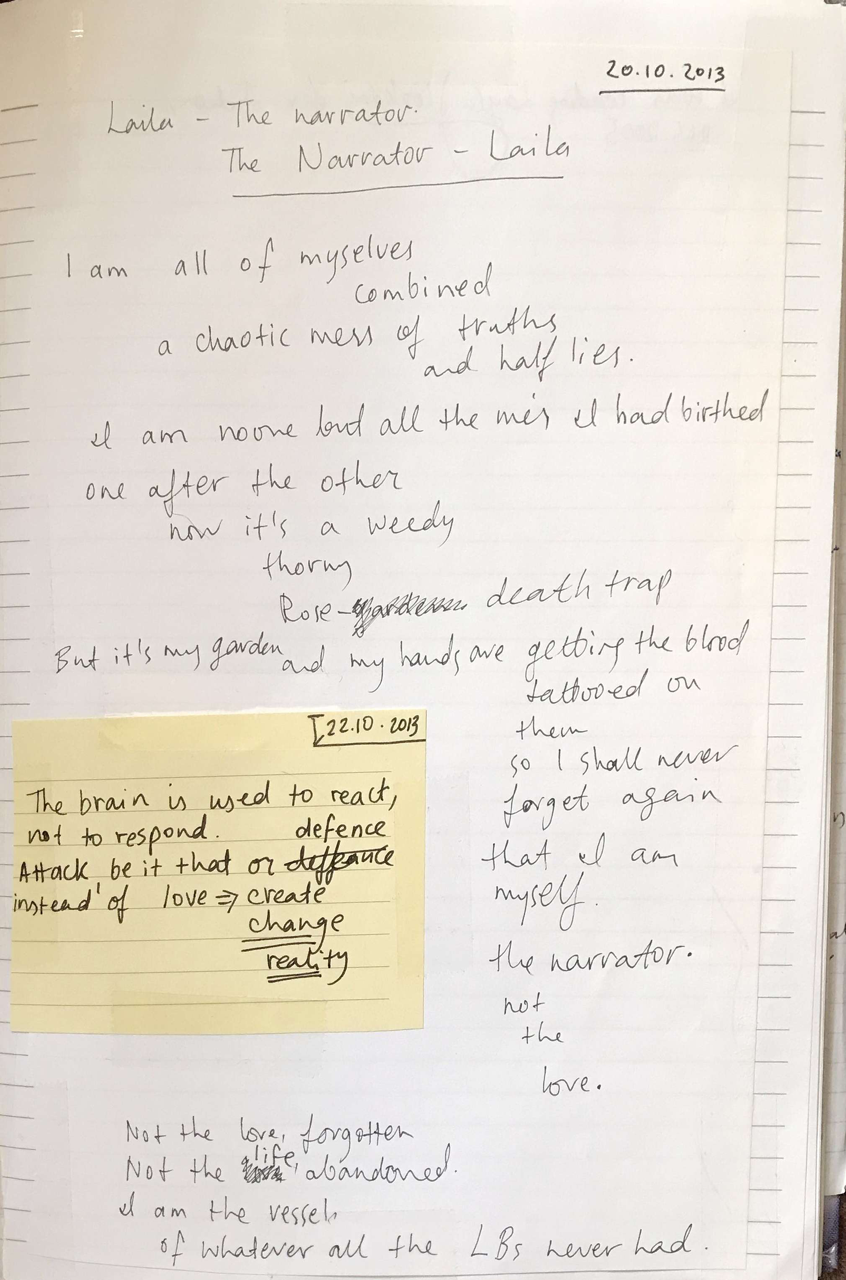 20.10.2013
Laila - The narrator.
The Narrator - Laila
I am all of myselves
combined
a chaotic mess of truths
and half lies.
I am noone but all the me's I had birthed
one after the other
now it's a weedy
thorny
Rose- death trap
But it's my garden and my hands are getting the blood
tattooed on
them
so I shall never
forget again
that I am
myself.
the narrator.
not
the
love.
22.10.2013
The brain is used to react,
not to respond. defence
Attack be it that or
instead of love ⇒ create
change
reality
Not the love, forgotten
Not the life, abandoned.
I am the vessel
of whatever all the LBs never had.